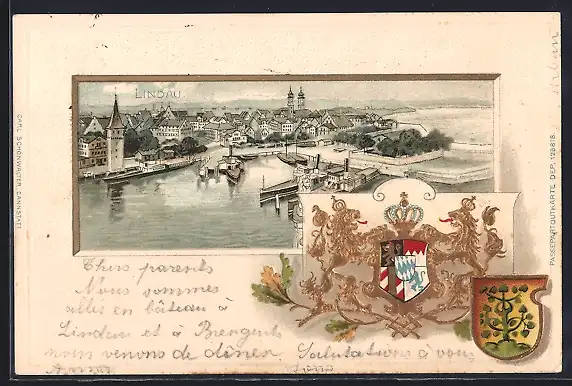 LINDAU.
CARL SCHÖNWALTER, CANNSTATT
PASSEPARTOUTKARTE DEP. 128818.
Chers parents
Nous sommes
allés en bâteau à
Lindau et à Bregenz
nous venons de dîner. Salutations à vous